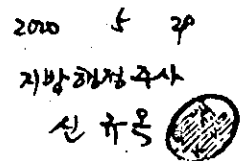 2020 5 29
지방행정주사
신규옥